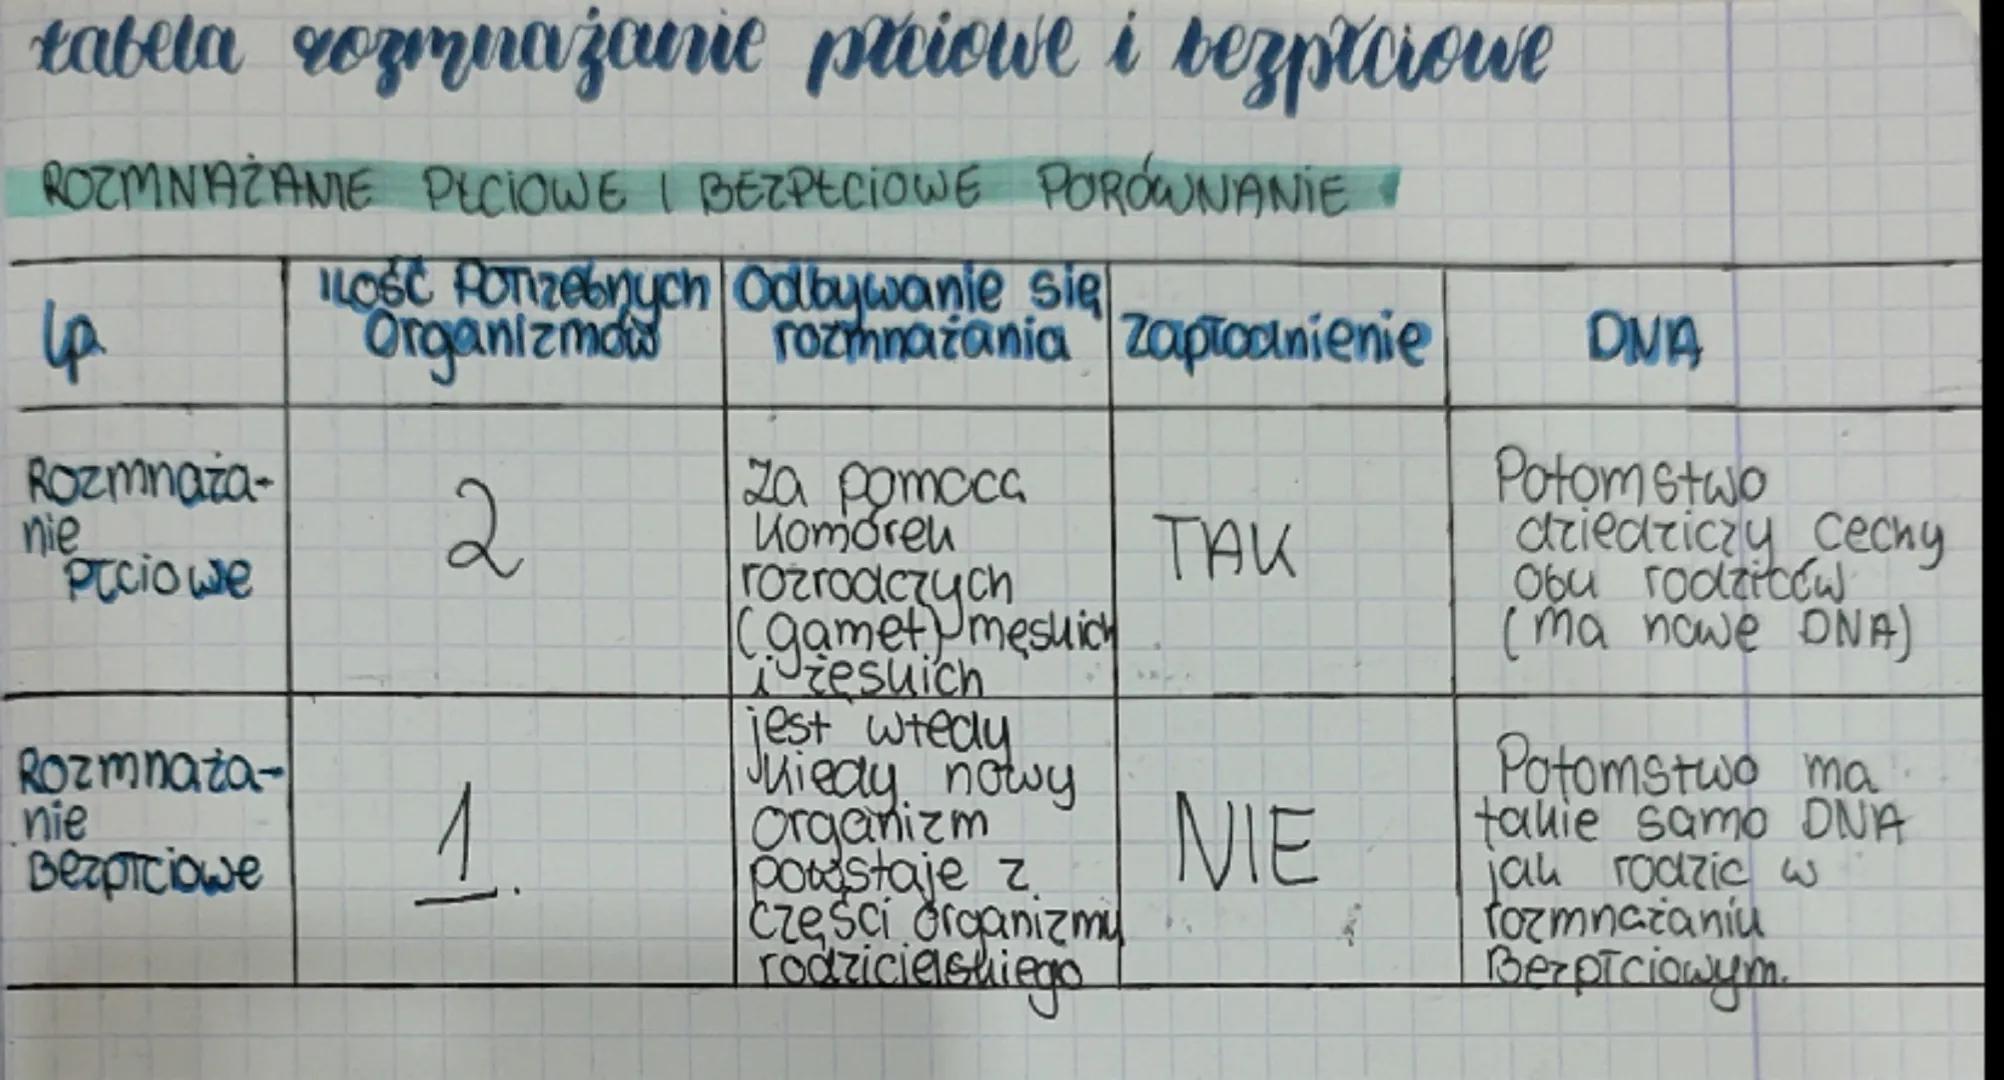 tabela rozmnażanie płciowe i bezpłciowe
ROZMNAŻANIE PŁCIOWE I BEZPŁCIOWE PORÓWNANIE
Lp
Ilość Potrzebnych
Organizmów
Odbywanie się
rozmnażania
Zapłodnienie
DNA
Rozmnaża-
nie
płciowe
2
Za pomocą
komórek
rozrodczych
(gamet) męskich
i żeskich
TAK
Potomstwo
dziedziczy cechy
obu rodziców
(ma nowe DNA)
Rozmnaża-
nie
Bezpłciowe
1.
jest wtedy
kiedy nowy
organizm
powstaje z
części organizmu
rodzicielskiego
NIE
Potomstwo ma
takie samo DNA
jak rodzic w
rozmnażaniu
Bezpłciowym.